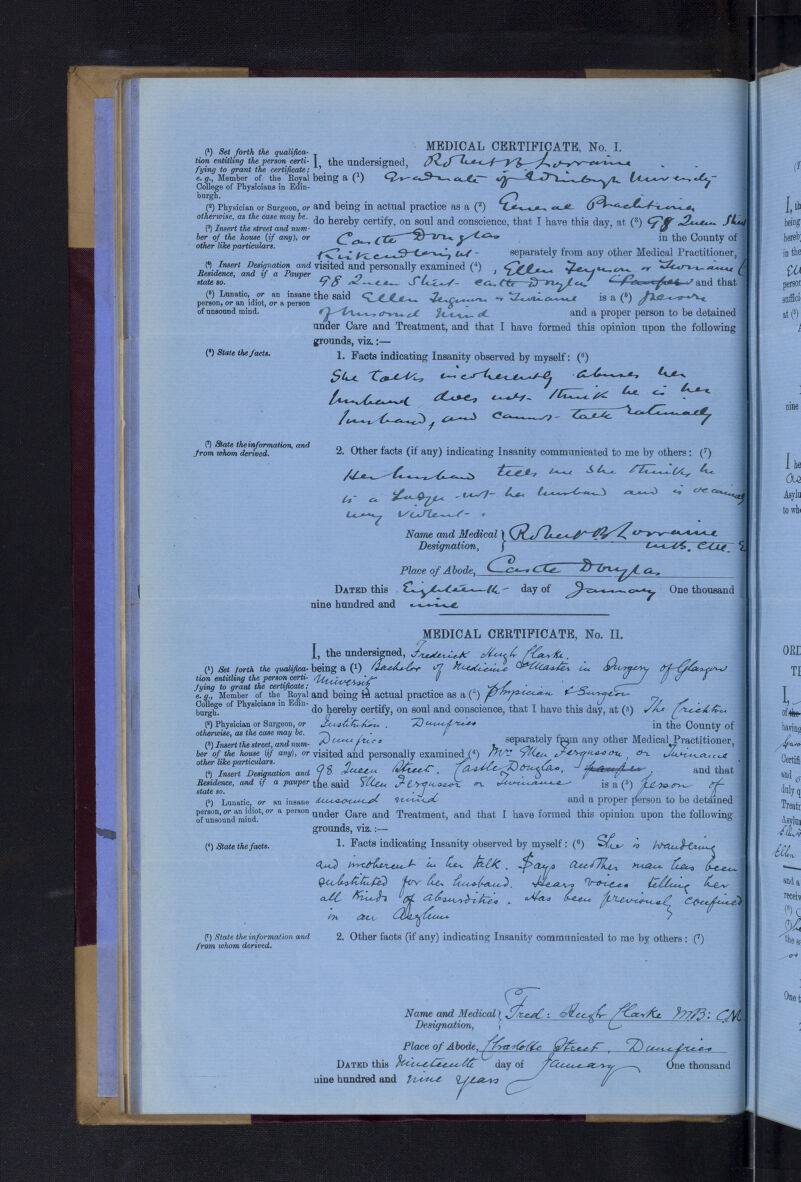 MEDICAL CERTIFICATE, No. I.
(¹) Set forth the qualifica-
tion entitling the person certi-
fying to grant the certificate;
e. g., Member of the Royal
College of Physicians in Edin-
burgh.
I, the undersigned, Robert B Lorraine
being a (¹) Graduate of Edinburgh University
(²) Physician or Surgeon, or
otherwise, as the case may be.
and being in actual practice as a (²) General Practitioner
(³) Insert the street and num-
ber of the house (if any), or
other like particulars.
do hereby certify, on soul and conscience, that I have this day, at (³) 98 Queen Street
Castle Douglas in the County of
Kirkcudbright separately from any other Medical Practitioner,
(⁴) Insert Designation and
Residence, and if a Pauper
state so.
visited and personally examined (⁴), Ellen Ferguson or Twiname
98 Queen Street Castle Douglas Pauper and that
(⁵) Lunatic, or an insane
person, or an idiot, or a person
of unsound mind.
the said Ellen Ferguson or Twiname is a (⁵) person
of unsound mind and a proper person to be detained
under Care and Treatment, and that I have formed this opinion upon the following
grounds, viz.:—
(⁶) State the facts.
1. Facts indicating Insanity observed by myself: (⁶)
She talks incoherently abuses her
husband does not think he is her
husband, and cannot talk rationally
(⁷) State the information, and
from whom derived.
2. Other facts (if any) indicating Insanity communicated to me by others: (⁷)
Her husband tells me she thinks he
is a Lodger not her husband and is occasionally
very violent.
Name and Medical Designation, Robert B Lorraine
M.B. C.M. E
Place of Abode, Castle Douglas
DATED this Eighteenth day of January One thousand
nine hundred and nine
MEDICAL CERTIFICATE, No. II.
I, the undersigned, Frederick Hugh Clarke
(¹) Set forth the qualifica-
tion entitling the person certi-
fying to grant the certificate;
e. g., Member of the Royal
College of Physicians in Edin-
burgh.
being a (¹) Bachelor of Medicine & Master in Surgery of Glasgow
University
and being in actual practice as a (²) Physician & Surgeon
(²) Physician or Surgeon, or
otherwise, as the case may be.
do hereby certify, on soul and conscience, that I have this day, at (³) The Crichton
Institution. Dumfries in the County of
(³) Insert the street, and num-
ber of the house (if any), or
other like particulars.
Dumfries separately from any other Medical Practitioner,
visited and personally examined (⁴) Mrs Ellen Fergusson, or Twiname
(⁴) Insert Designation and
Residence, and if a pauper
state so.
98 Queen Street, Castle Douglas, pauper and that
the said Ellen Fergusson or Twiname is a (⁵) person of
(⁵) Lunatic, or an insane
person, or an idiot, or a person
of unsound mind.
unsound mind and a proper person to be detained
under Care and Treatment, and that I have formed this opinion upon the following
grounds, viz.:—
(⁶) State the facts.
1. Facts indicating Insanity observed by myself: (⁶) She is wandering
and incoherent in her talk. Says another man has been
substituted for her husband. Hears voices telling her
all kinds of absurdities. Has been previously confined
in an Asylum
(⁷) State the information and
from whom derived.
2. Other facts (if any) indicating Insanity communicated to me by others: (⁷)
Name and Medical Designation, Fred: Hugh Clarke MB: CM
Place of Abode, Charlotte Street, Dumfries
DATED this Nineteenth day of January One thousand
nine hundred and nine years